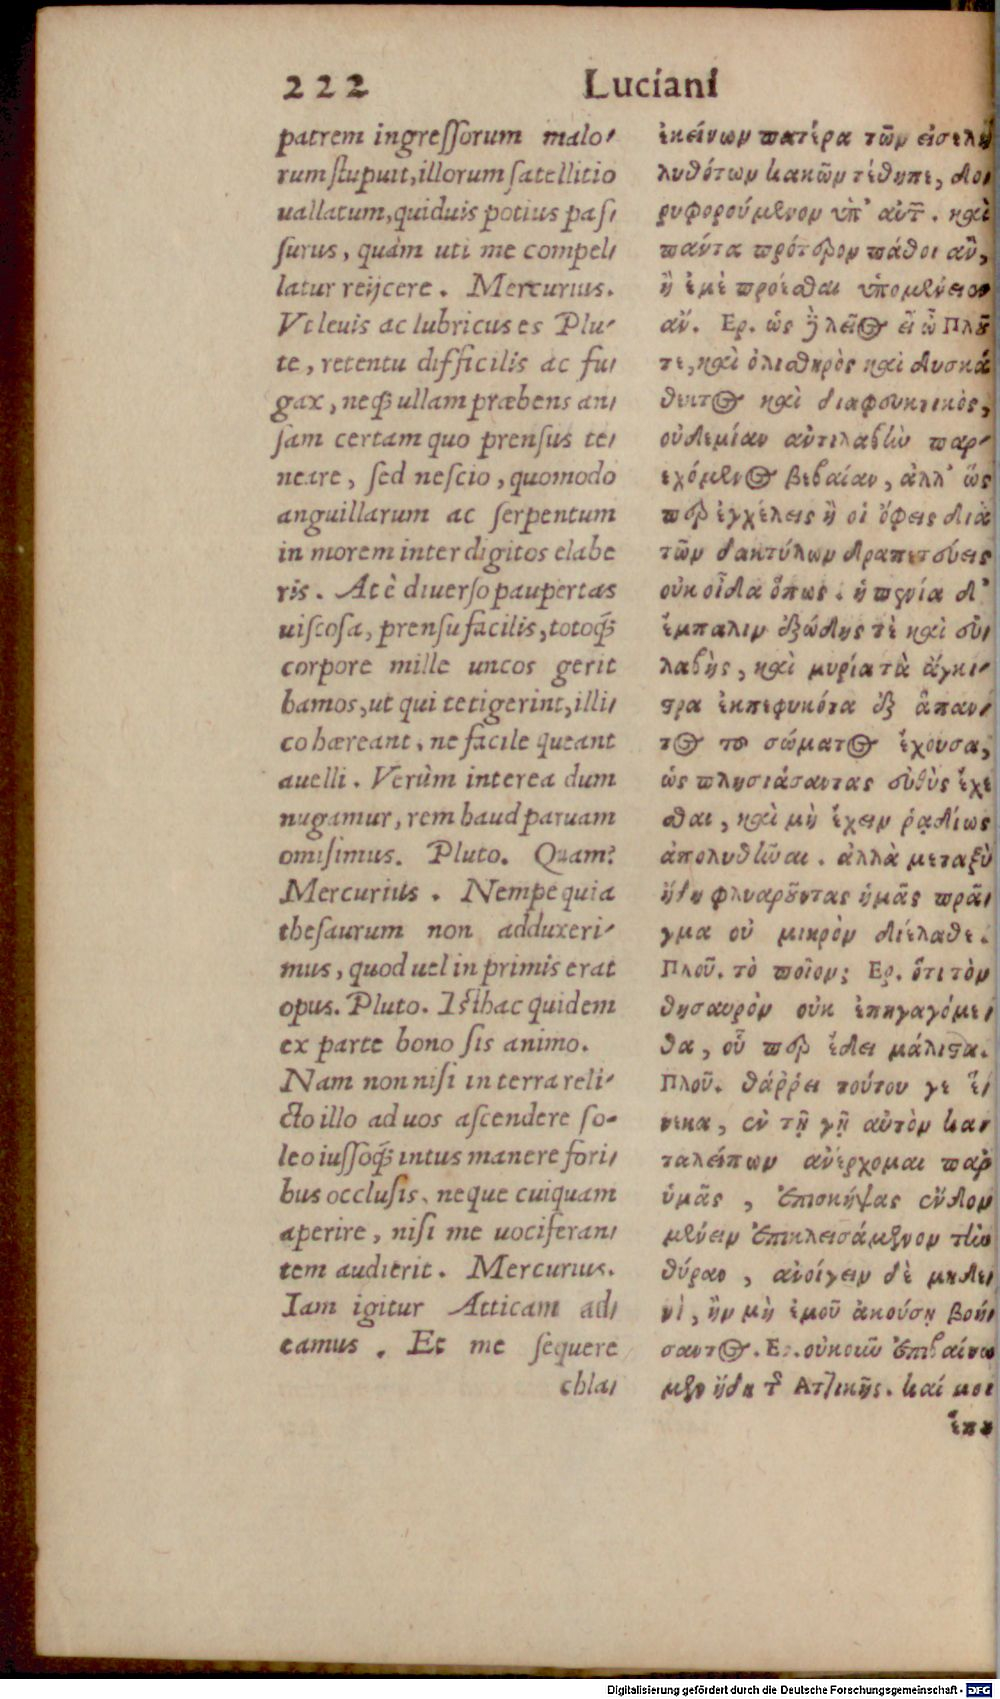 222 Luciani
patrem ingressorum malo-
rum stupuit, illorum satellitio
uallatum, quiduis potius pas-
surus, quàm uti me compel-
latur reijcere. Mercurius.
Vt leuis ac lubricus es Plu-
te, retentu difficilis ac fu-
gax, neq́; ullam præbens an-
sam certam quo prensus te-
neare, sed nescio, quomodo
anguillarum ac serpentum
in morem inter digitos elabe
ris. At è diuerso paupertas
uiscosa, prensu facilis, totoq́;
corpore mille uncos gerit
hamos, ut qui tetigerint, illi-
co hæreant, ne facile queant
auelli. Verùm interea dum
nugamur, rem haud paruam
omisimus. Pluto. Quam?
Mercurius. Nempe quia
thesaurum non adduxeri-
mus, quod uel in primis erat
opus. Pluto. Isthac quidem
ex parte bono sis animo.
Nam non nisi in terra reli-
cto illo ad uos ascendere so-
leo iussoq́; intus manere fori-
bus occlusis, neque cuiquam
aperire, nisi me uociferan-
tem audierit. Mercurius.
Iam igitur Atticam ad-
eamus. Et me sequere
chla-
ἐκείνων πατέρα τῶν εἰσελη
λυθότων κακῶν τέθηπε, δο-
ρυφορούμενον ὑπ' αὐτ̃. καὶ
πάντα πρότερον πάθοι ἂν,
ἢ ἐμὲ πρόεσθαι ὑπομείνειεν
ἄν. Ερ. ὡς δὲ λεῖος εἶ ὦ Πλοῦ
τε, καὶ ὀλισθηρὸς καὶ δυσκά
θεκτος καὶ διαφευκτικὸς,
οὐδεμίαν ἀντιλαβὴν παρ-
εχόμενος βεβαίαν, ἀλλ' ὥς
περ ἐγχέλεις ἢ οἱ ὄφεις διὰ
τῶν δακτύλων δραπετεύεις
οὐκ οἶδα ὅπως. ἡ πενία δ'
ἔμπαλιν ἰξώδης τὲ καὶ εὐ-
λαβὴς, καὶ μυρία τὰ ἄγκι-
στρα ἐκπεφυκότα ἐξ ἅπαν-
τος το σώματος ἔχουσα,
ὡς πλησιάσαντας εὐθὺς ἔχε
σθαι, καὶ μὴ ἔχειν ῥᾳδίως
ἀπολυθῆναι. ἀλλὰ μεταξὺ
ἤδη φλυαροῦντας ἡμᾶς πρᾶ-
γμα οὐ μικρὸν διέλαθε.
Πλοῦ. τὸ ποῖον; Ερ. ὅτι τὸν
θησαυρὸν οὐκ ἐπηγαγόμε-
θα, οὗ περ ἔδει μάλιστα.
Πλοῦ. θάῤῥει τούτου γε ἕ-
νεκα, ἐν τῇ γῇ αὐτὸν κα-
ταλείπων ἀνέρχομαι παρ
ὑμᾶς, ἐπισκήψας ἔνδον
μένειν ἐπικλεισάμενον τὴν
θύραν, ἀνοίγειν δὲ μηδε-
νὶ, ἢν μὴ ἐμοῦ ἀκούσῃ βοή-
σαντος. Ερ. οὐκοῦν ἐπιβαίνω
μεν ἤδη τ̃ Ατλικῆς. καί μοι
ἕπου
Digitalisierung gefördert durch die Deutsche Forschungsgemeinschaft - DFG